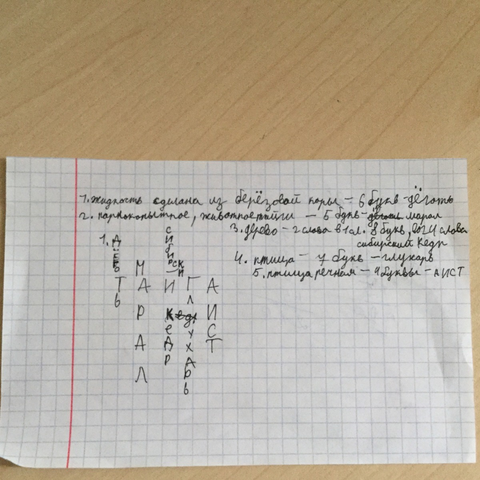 1. жидкость сделана из берёзовой коры - 6 букв - дёготь
2. парнокопытное, животное тайги - 5 букв - марал
3. дерево - 2 слова в 1 сл. 8 букв, во 2 4 слова
сибирский кедр
4. птица - 7 букв - глухарь
5. птица речная - 4 буквы - АИСТ
1. Д
С И Б И Р С К И Й
М
Т А И Г А
Ь Л
Р К е д р У И
е Х С
А Д А Т
Р Р
Л Ь